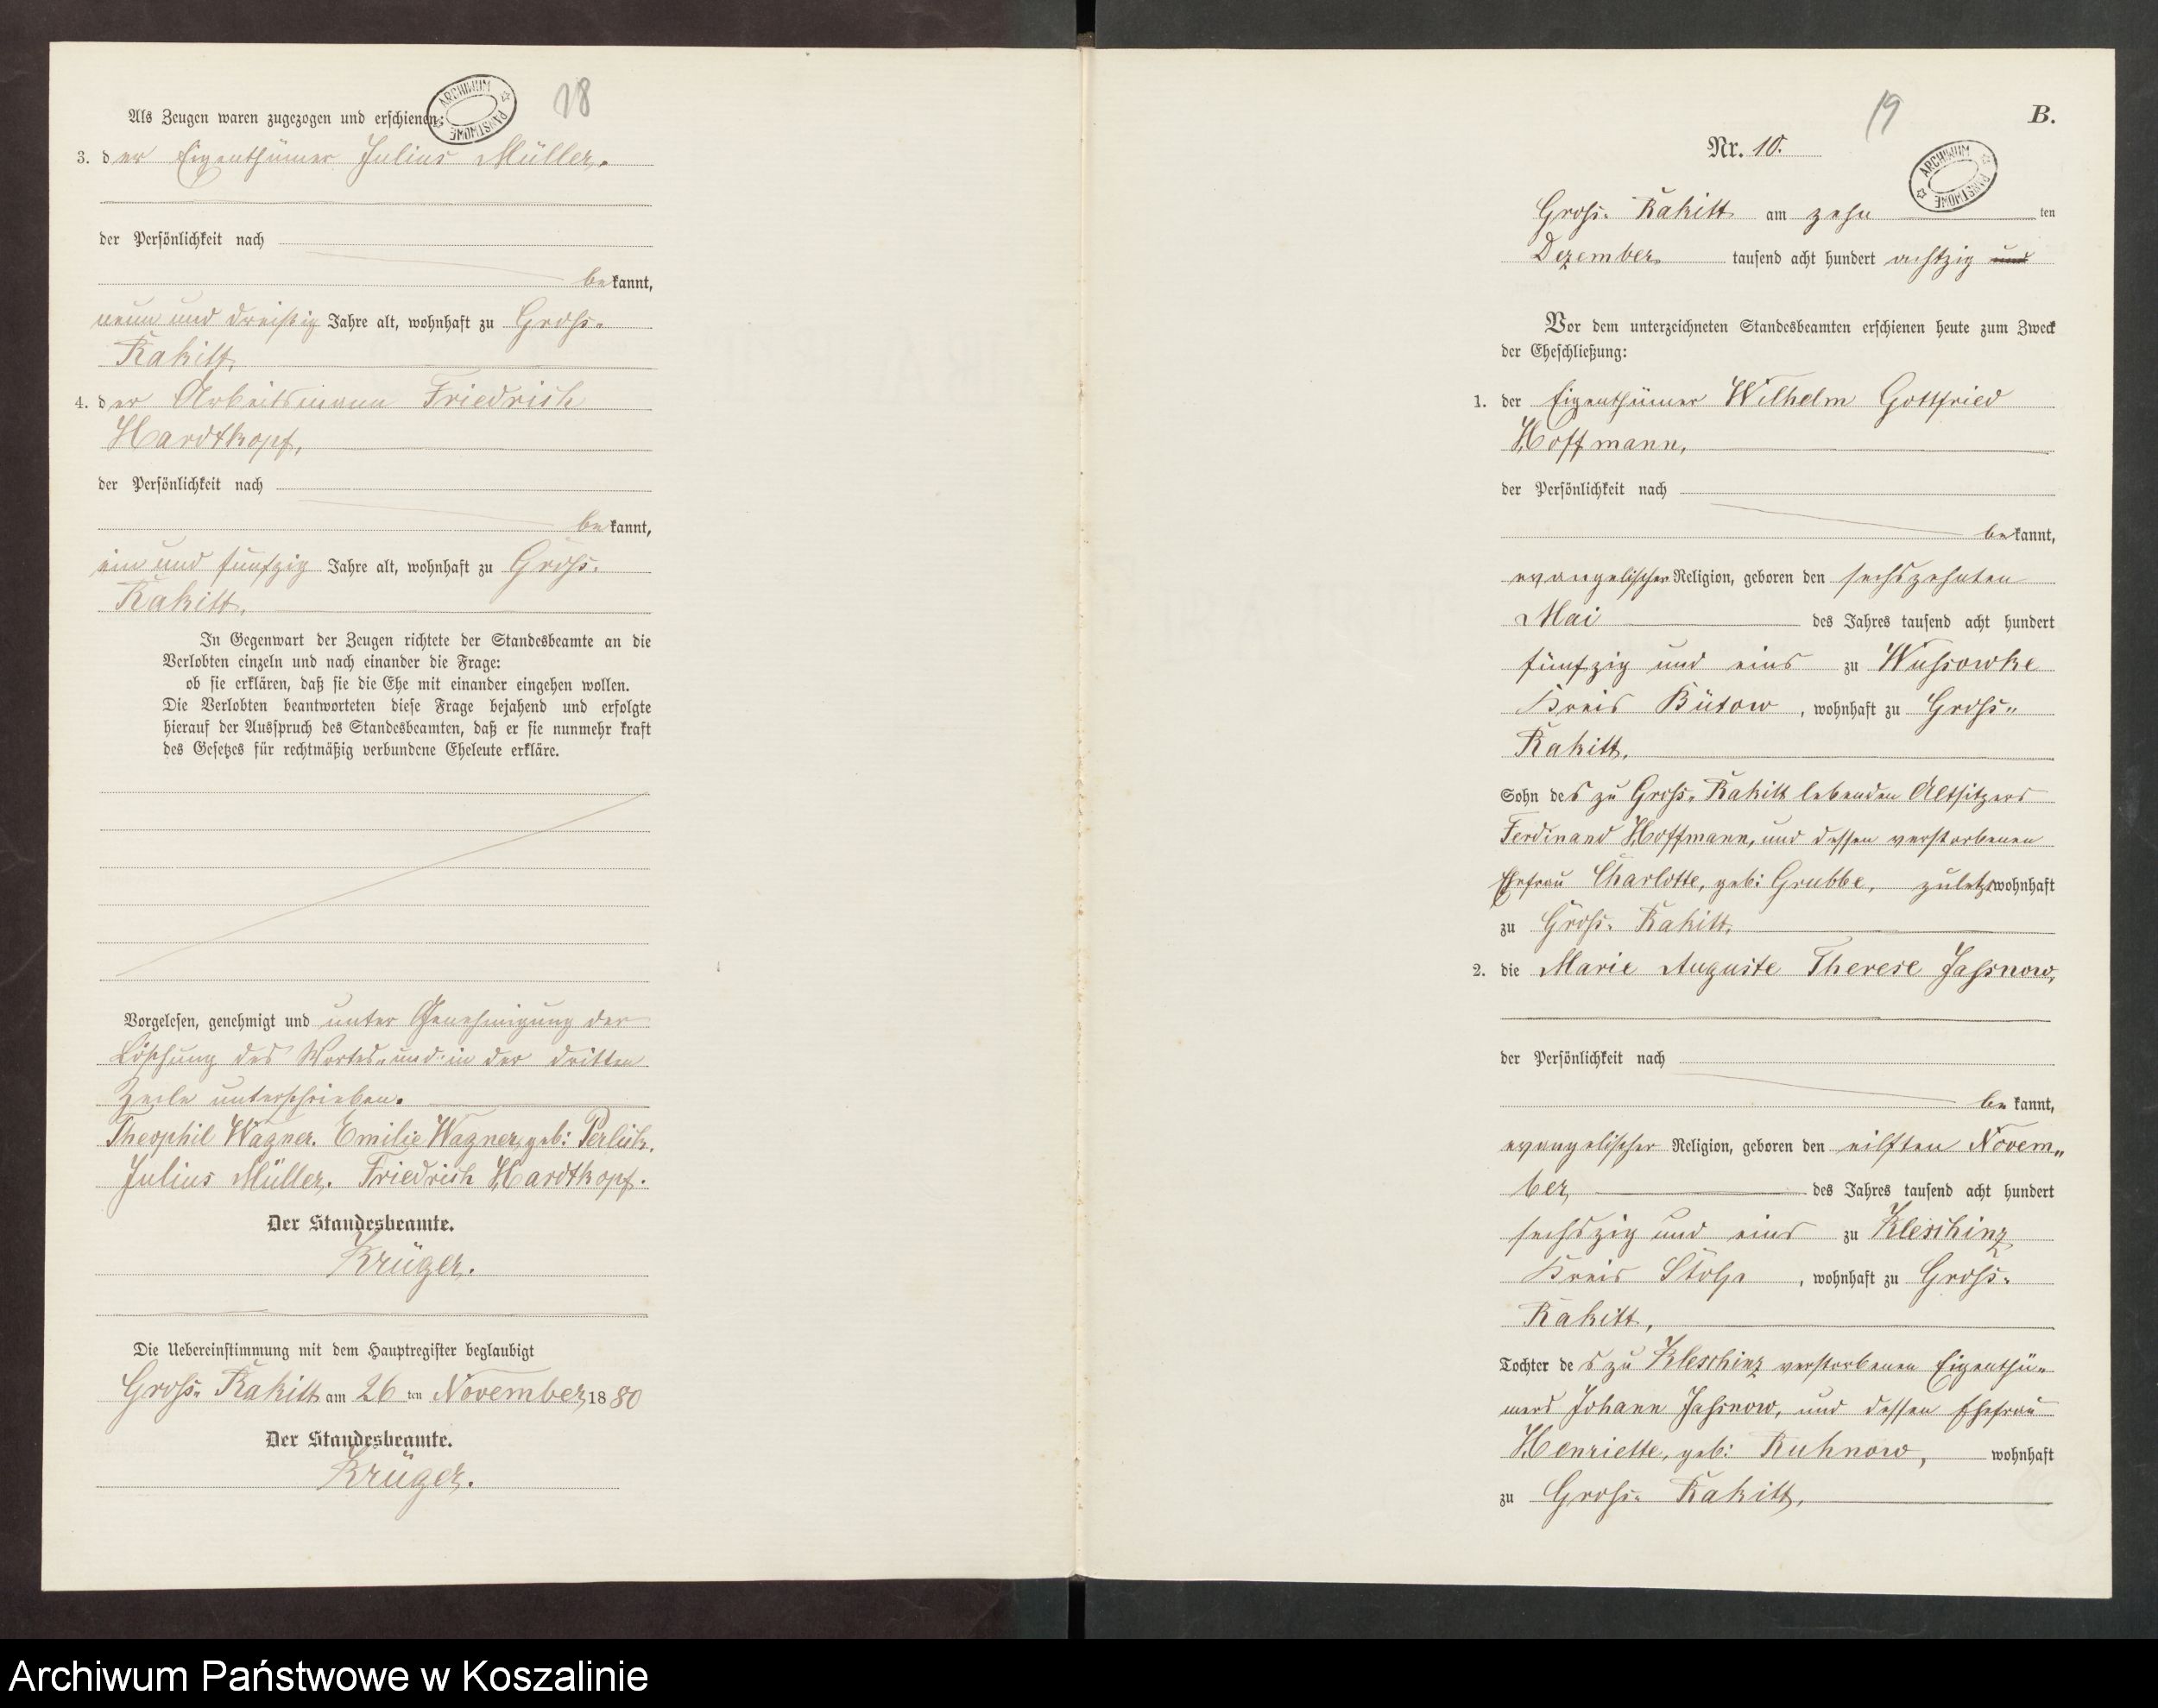 18
ARCHIWUM PAŃSTWOWE
Als Zeugen waren zugezogen und erschienen:
3. der Eigenthümer Julius Müller.
der Persönlichkeit nach
bekannt,
neun und dreißig Jahre alt, wohnhaft zu Groß-
Rakitt,
4. der Arbeitsmann Friedrich
Hardtkopf,
der Persönlichkeit nach
bekannt,
ein und fünfzig Jahre alt, wohnhaft zu Groß-
Rakitt.
In Gegenwart der Zeugen richtete der Standesbeamte an die
Verlobten einzeln und nach einander die Frage:
ob sie erklären, daß sie die Ehe mit einander eingehen wollen.
Die Verlobten beantworteten diese Frage bejahend und erfolgte
hierauf der Ausspruch des Standesbeamten, daß er sie nunmehr kraft
des Gesetzes für rechtmäßig verbundene Eheleute erkläre.
Vorgelesen, genehmigt und unter Genehmigung der
Löschung des Wortes „und“ in der dritten
Zeile unterschrieben.
Theophil Wagner. Emilie Wagner, geb: Perlick.
Julius Müller. Friedrich Hardtkopf.
Der Standesbeamte.
Krüger.
Die Uebereinstimmung mit dem Hauptregister beglaubigt
Groß-Rakitt am 26 ten November 1880
Der Standesbeamte.
Krüger.
19
B.
Nr. 10.
ARCHIWUM PAŃSTWOWE
Groß-Rakitt am zehn ten
Dezember tausend acht hundert achtzig und
Vor dem unterzeichneten Standesbeamten erschienen heute zum Zweck
der Eheschließung:
1. der Eigenthümer Wilhelm Gottfried
Hoffmann,
der Persönlichkeit nach
bekannt,
evangelischer Religion, geboren den sechszehnten
Mai des Jahres tausend acht hundert
fünfzig und eins zu Wussowke
Kreis Bütow, wohnhaft zu Groß-
Rakitt,
Sohn des zu Groß-Rakitt lebenden Altsitzers
Ferdinand Hoffmann, und dessen verstorbenen
Ehefrau Charlotte, geb: Grubbe, zuletzt wohnhaft
zu Groß-Rakitt,
2. die Marie Auguste Therese Jassnow,
der Persönlichkeit nach
bekannt,
evangelischer Religion, geboren den eilften Novem-
ber, des Jahres tausend acht hundert
sechszig und eins zu Kleschinz
Kreis Stolp, wohnhaft zu Groß-
Rakitt,
Tochter des zu Kleschinz verstorbenen Eigenthü-
mers Johann Jassnow, und dessen Ehefrau
Henriette, geb: Kuhnow, wohnhaft
zu Groß-Rakitt,
Archiwum Państwowe w Koszalinie